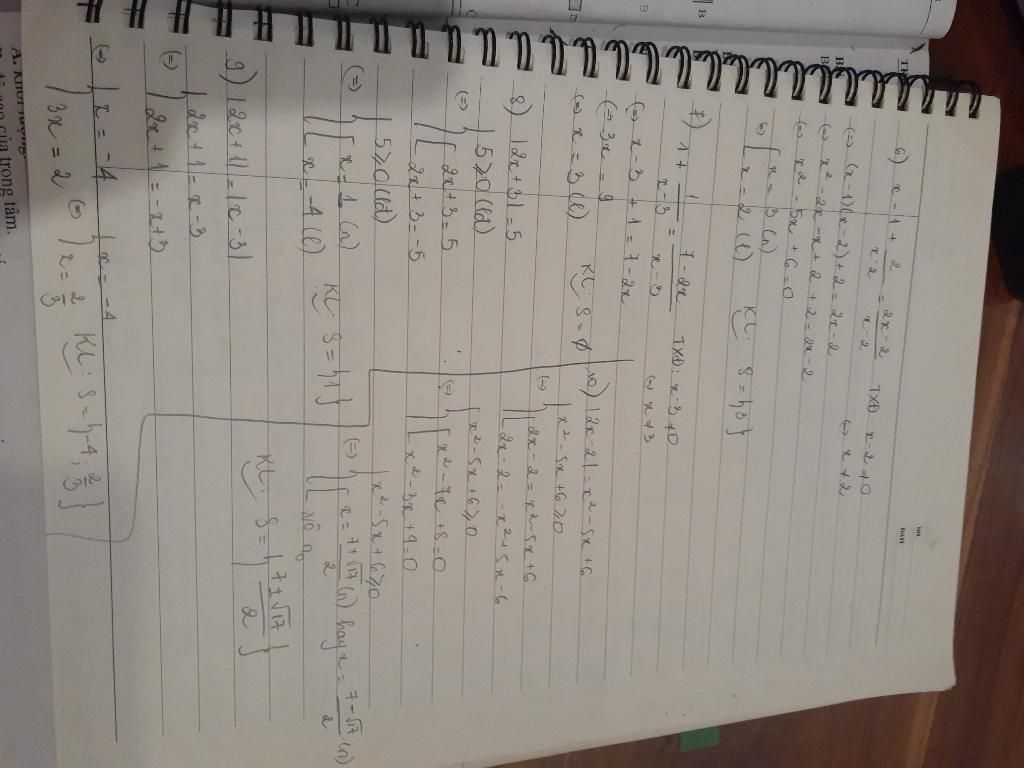 6) x - 1 + 2/(x-2) = (2x-2)/(x-2) TXĐ: x-2≠0
(=) (x-1)(x-2)+2 = 2x-2 (=) x≠2
(=) x² - 2x - x + 2 + 2 = 2x - 2
(=) x² - 5x + 6 = 0
(=) [ x = 3 (n)
[ x = 2 (l) KL: S = {3}
7) 1 + 1/(x-3) = (7-2x)/(x-3) TXĐ: x-3≠0
(=) x≠3
(=) x-3 + 1 = 7-2x
(=) 3x = 9
(=) x = 3 (l) KL: S = ∅
8) |2x+3| = 5
(=) { 5≥0 (lđ)
{ [ 2x+3 = 5
[ 2x+3 = -5
(=) { 5≥0 (lđ)
{ [ x = 1 (n)
[ x = -4 (l) KL: S = {1}
9) |2x+1| = |x-3|
{ 2x+1 = x-3
(=) { 2x+1 = -x+3
(=) { x = -4 { x = -4
{ 3x = 2 (=) { x = 2/3 KL: S = {-4; 2/3}
10) |2x-2| = x²-5x+6
(=) { x²-5x+6≥0
{ [ 2x-2 = x²-5x+6
[ 2x-2 = -x²+5x-6
(=) { x²-5x+6≥0
{ [ x²-7x+8=0
[ x²-3x+4=0
(=) { x²-5x+6≥0
{ [ x = (7+√17)/2 (n) hay x = (7-√17)/2 (n)
[ Vô n₀
KL: S = { (7±√17)/2 }
trọng tâm.